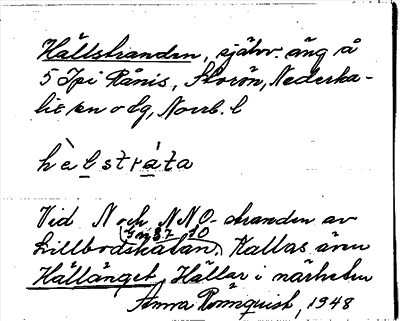 Hällstranden, självv. äng å
5 Tpi Rånis, Storön, Nederka-
lix sn o lg, Norrb. l
hèlstráta
Vid N och NNO-stranden av
Lillbodskatan. Kallas även
Hällänget. Hällar i närheten
Anna Rönnquist, 1948